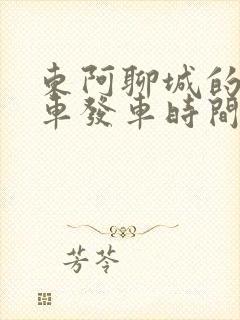 東阿聊城的
車發車時間
芳苓